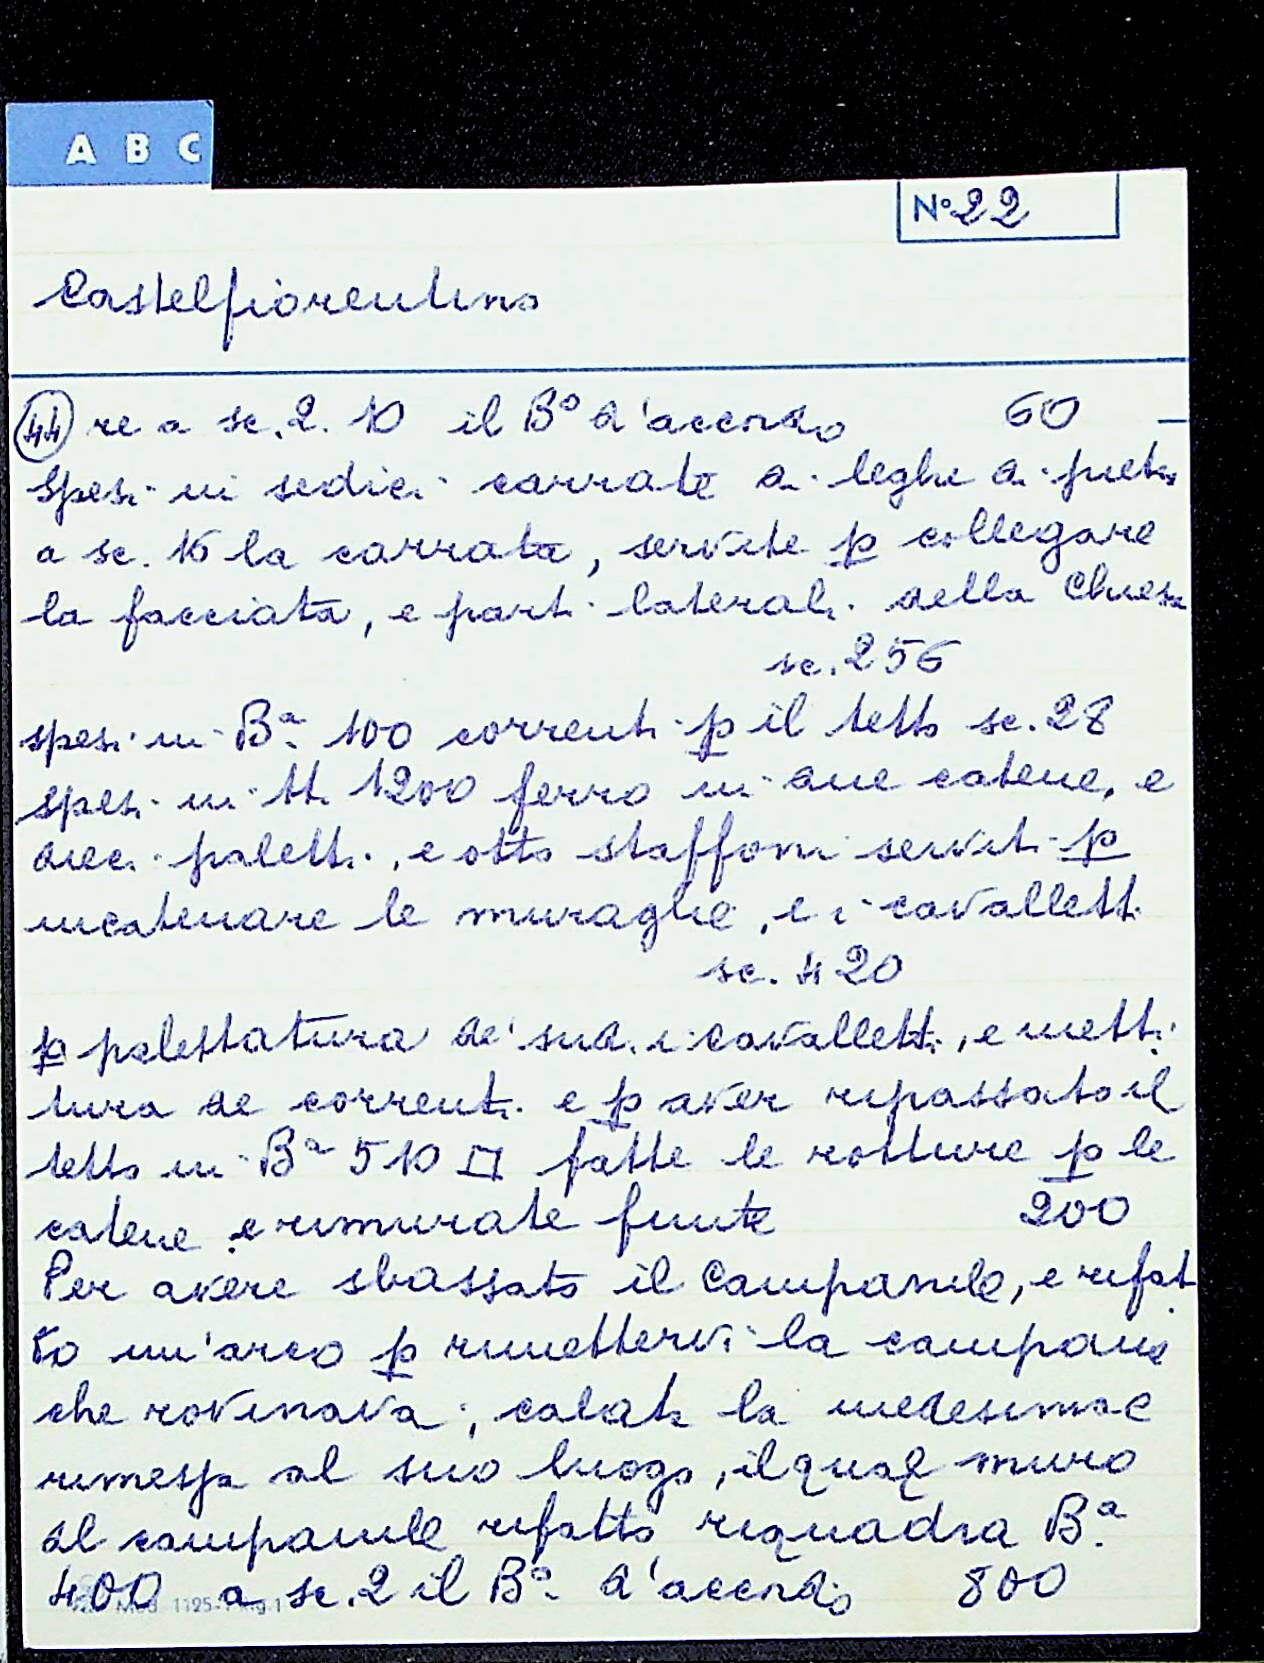 A B C
N° 22
Castelfiorentino
44 re a sc. 2. 10 il B° d'accordo 60 –
Spesi in sedici carrate di leghe di pietra
a sc. 16 la carrata, servite p collegare
la facciata, e parti laterali della Chiesa
sc. 256
spesi in Bª 100 correnti p il tetto sc. 28
spesi in tt 1200 ferro in due catene, e
dieci paletti, e otto staffoni serviti p
incatenare le muraglie, e i cavalletti
sc. 420
p palettatura de' sudi cavalletti, e metti
tura de correnti e p aver ripassato il
tetto in Bª 510 □ fatte le rotture p le
catene e rimurate finite 200
Per avere sbassato il Campanile, e rifat
to un'arco p rimettervi la campana
che rovinava; calata la medesima e
rimessa al suo luogo, il qual muro
al campanile rifatto riquadra Bª
400 a sc. 2 il Bª d'accordo 800
Mod. 1125